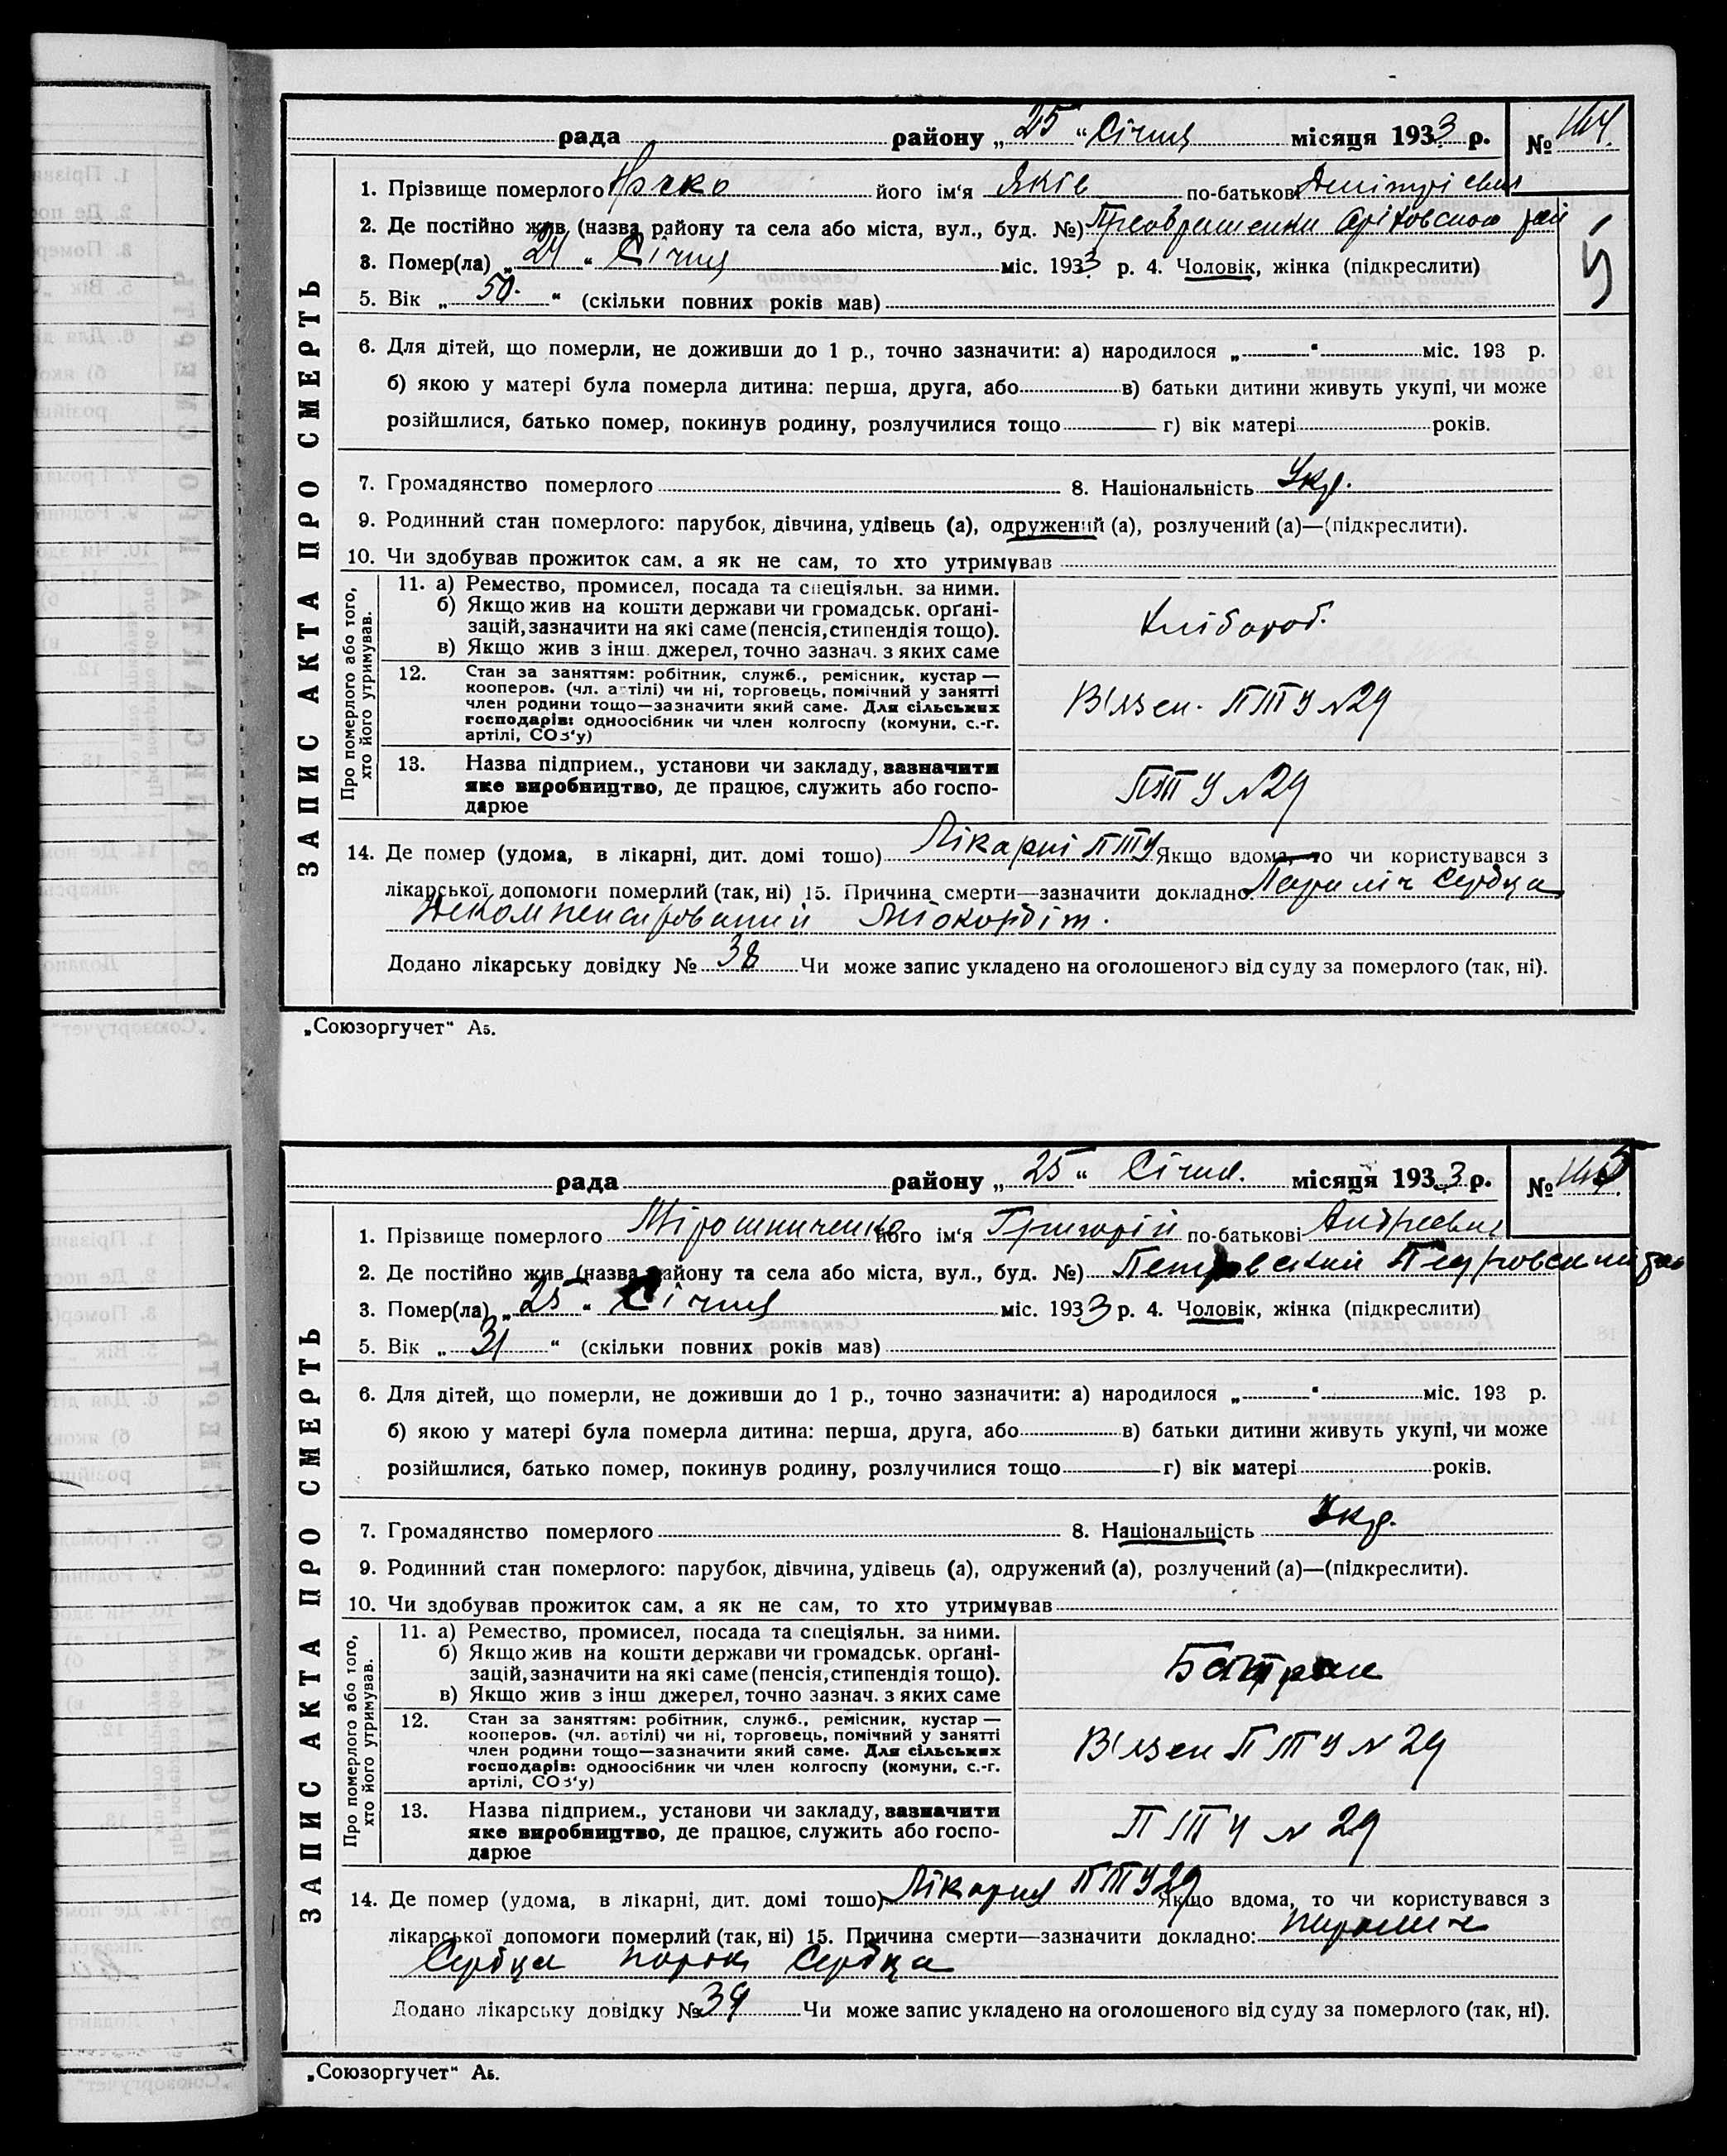 рада района „ 25 “ Січня місяця 1933 р. № 144
1. Прізвище померлого його ім‘я Яків по-батькові Дмітрієвич
2. Де постійно жив (назва району та села або міста, вул., буд. №) Оріховского рай
3. Помер(ла) „ 24 “ Січня міс. 1933 р. 4. Чоловік, жінка (підкреслити)
5. Вік „ 50. “ (скільки повних років мав)
6. Для дітей, що померли, не доживши до 1 р., точно зазначити: а) народилося „ “ міс. 193 р.
б) якою у матері була померла дитина: перша, друга, або в) батьки дитини живуть укупі, чи може
розійшлися, батько помер, покинув родину, розлучилися тощо г) вік матері років.
7. Громадянство померлого 8. Національність Укр.
9. Родинний стан померлого: парубок, дівчина, удівець (а), одружений (а), розлучений (а)—(підкреслити).
10. Чи здобував прожиток сам, а як не сам, то хто утримував
ЗАПИС АКТА ПРО СМЕРТЬ
Про померлого або того,
хто його утримував.
11. а) Ремество, промисел, посада та спеціяльн. за ними.
б) Якщо жив на кошти держави чи громадськ. орґані-
зацій, зазначити на які саме (пенсія, стипендія тощо).
в) Якщо жив з інш. джерел, точно зазнач. з яких саме
Хлібороб.
12. Стан за заняттям: робітник, служб., ремісник, кустар —
кооперов. (чл. артілі) чи ні, торговець, помічний у занятті
член родини тощо—зазначити який саме. Для сільських
господарів: одноосібник чи член колгоспу (комуни, с.-г.
артілі, СОЗ‘у)
В‘язен. ПТУ №29
13. Назва підприєм., установи чи закладу, зазначити
яке виробництво, де працює, служить або госпо-
дарює
ПТУ №29
14. Де помер (удома, в лікарні, дит. домі тошо) Лікарні ПТУ Якщо вдома, то чи користувався з
лікарської допомоги померлий (так, ні) 15. Причина смерти—зазначити докладно: Параліч Сердца
Декомпенсирований Міокордіт.
Додано лікарську довідку № 38 Чи може запис укладено на оголошеного від суду за померлого (так, ні).
„Союзоргучет“ А5.
рада района „ 25 “ Січня. місяця 1933 р. № 145
1. Прізвище померлого Мірошниченко його ім‘я Григорій по-батькові Андреевич
2. Де постійно жив (назва району та села або міста, вул., буд. №) Петровский Петровский рай
3. Помер(ла) „ 25 “ Січня міс. 1933 р. 4. Чоловік, жінка (підкреслити)
5. Вік „ 31 “ (скільки повних років мав)
6. Для дітей, що померли, не доживши до 1 р., точно зазначити: а) народилося „ “ міс. 193 р.
б) якою у матері була померла дитина: перша, друга, або в) батьки дитини живуть укупі, чи може
розійшлися, батько помер, покинув родину, розлучилися тощо г) вік матері років.
7. Громадянство померлого 8. Національність Укр.
9. Родинний стан померлого: парубок, дівчина, удівець (а), одружений (а), розлучений (а)—(підкреслити).
10. Чи здобував прожиток сам, а як не сам, то хто утримував
ЗАПИС АКТА ПРО СМЕРТЬ
Про померлого або того,
хто його утримував.
11. а) Ремество, промисел, посада та спеціяльн. за ними.
б) Якщо жив на кошти держави чи громадськ. орґані-
зацій, зазначити на які саме (пенсія, стипендія тощо).
в) Якщо жив з інш джерел, точно зазнач. з яких саме
12. Стан за заняттям: робітник, служб., ремісник, кустар —
кооперов. (чл. артілі) чи ні, торговець, помічний у занятті
член родини тощо—зазначити який саме. Для сільських
господарів: одноосібник чи член колгоспу (комуни, с.-г.
артілі, СОЗ‘у)
В‘язен ПТУ № 29
13. Назва підприєм., установи чи закладу, зазначити
яке виробництво, де працює, служить або госпо-
дарює
ПТУ № 29
14. Де помер (удома, в лікарні, дит. домі тошо) Лікарня ПТУ 29 Якщо вдома, то чи користувався з
лікарської допомоги померлий (так, ні) 15. Причина смерти—зазначити докладно: параліч
Сердца порок Сердца
Додано лікарську довідку № 39 Чи може запис укладено на оголошеного від суду за померлого (так, ні).
„Союзоргучет“ А5.